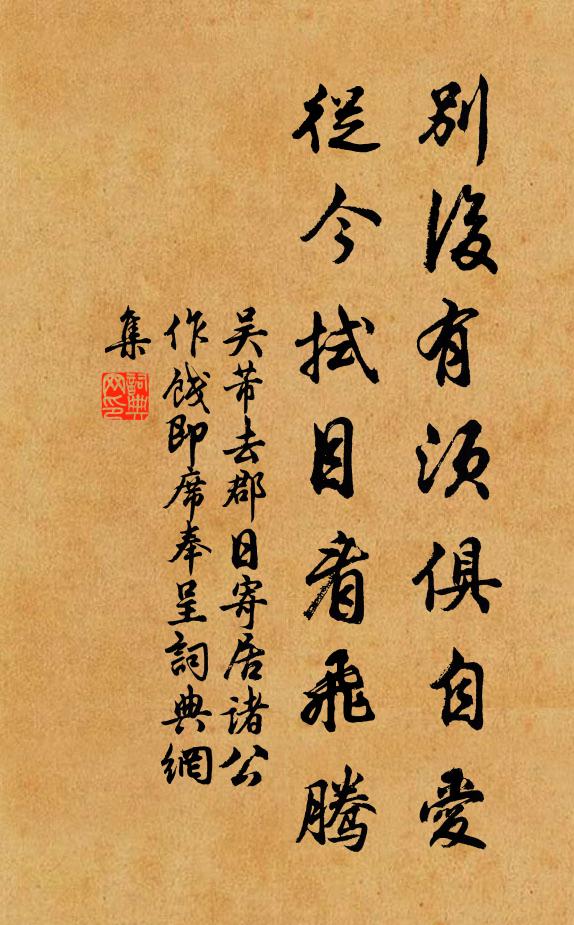 別後有須俱自愛
從今拭目看飛騰
吴芾去郡日寄居諸公
作餞即席奉呈詞典網
集
詞典
网印